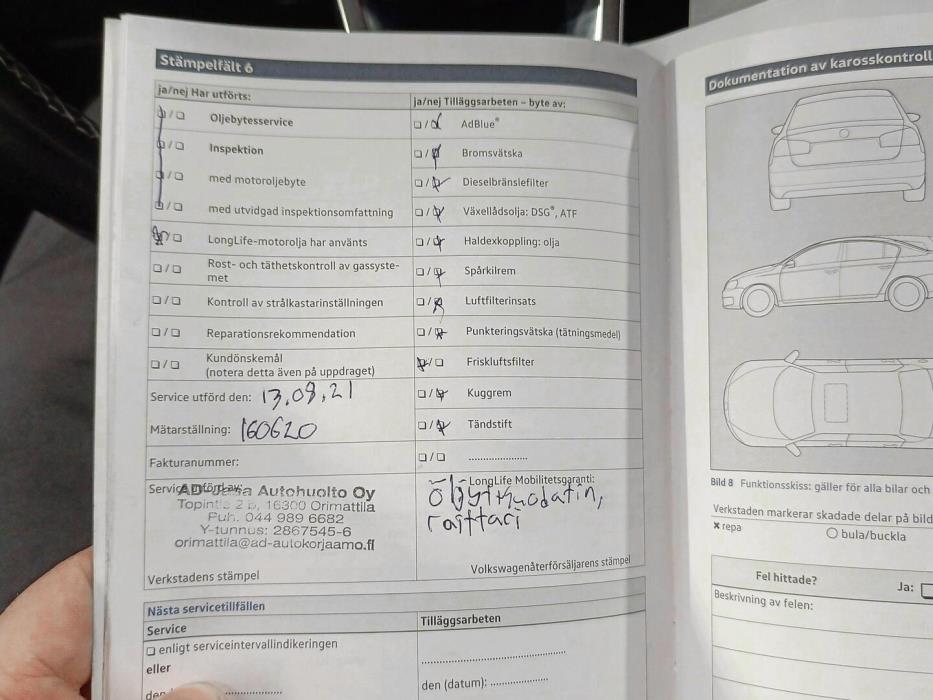 Stämpelfält 6
ja/nej Har utförts:
☐/☐ Oljebytesservice
☐/☐ Inspektion
☐/☐ med motoroljebyte
☐/☐ med utvidgad inspektionsomfattning
☐/☐ LongLife-motorolja har använts
☐/☐ Rost- och täthetskontroll av gassyste-
met
☐/☐ Kontroll av strålkastarinställningen
☐/☐ Reparationsrekommendation
☐/☐ Kundönskemål
(notera detta även på uppdraget)
Service utförd den: 13.09.21
Mätarställning: 160620
Fakturanummer:
Service utförd av:
Autohuolto Oy
16300 Orimattila
Puh. 044 989 6682
Y-tunnus: 2867545-6
orimattila@ad-autokorjaamo.fi
Verkstadens stämpel
ja/nej Tilläggsarbeten – byte av:
☐/☐ AdBlue®
☐/☐ Bromsvätska
☐/☐ Dieselbränslefilter
☐/☐ Växellådsolja: DSG®, ATF
☐/☐ Haldexkoppling: olja
☐/☐ Spårkilrem
☐/☐ Luftfilterinsats
☐/☐ Punkteringsvätska (tätningsmedel)
☐/☐ Friskluftsfilter
☐/☐ Kuggrem
☐/☐ Tändstift
☐/☐ ....................
LongLife Mobilitetsgaranti:
raittari
Volkswagenåterförsäljarens stämpel
Nästa servicetillfällen
Service
☐ enligt serviceintervallindikeringen
eller
Tilläggsarbeten
den (datum): ....................
Dokumentation av karosskontroll
Bild 8 Funktionsskiss: gäller för alla bilar och
Verkstaden markerar skadade delar på bild
× repa
○ bula/buckla
Fel hittade?
Ja: ☐
Beskrivning av felen: